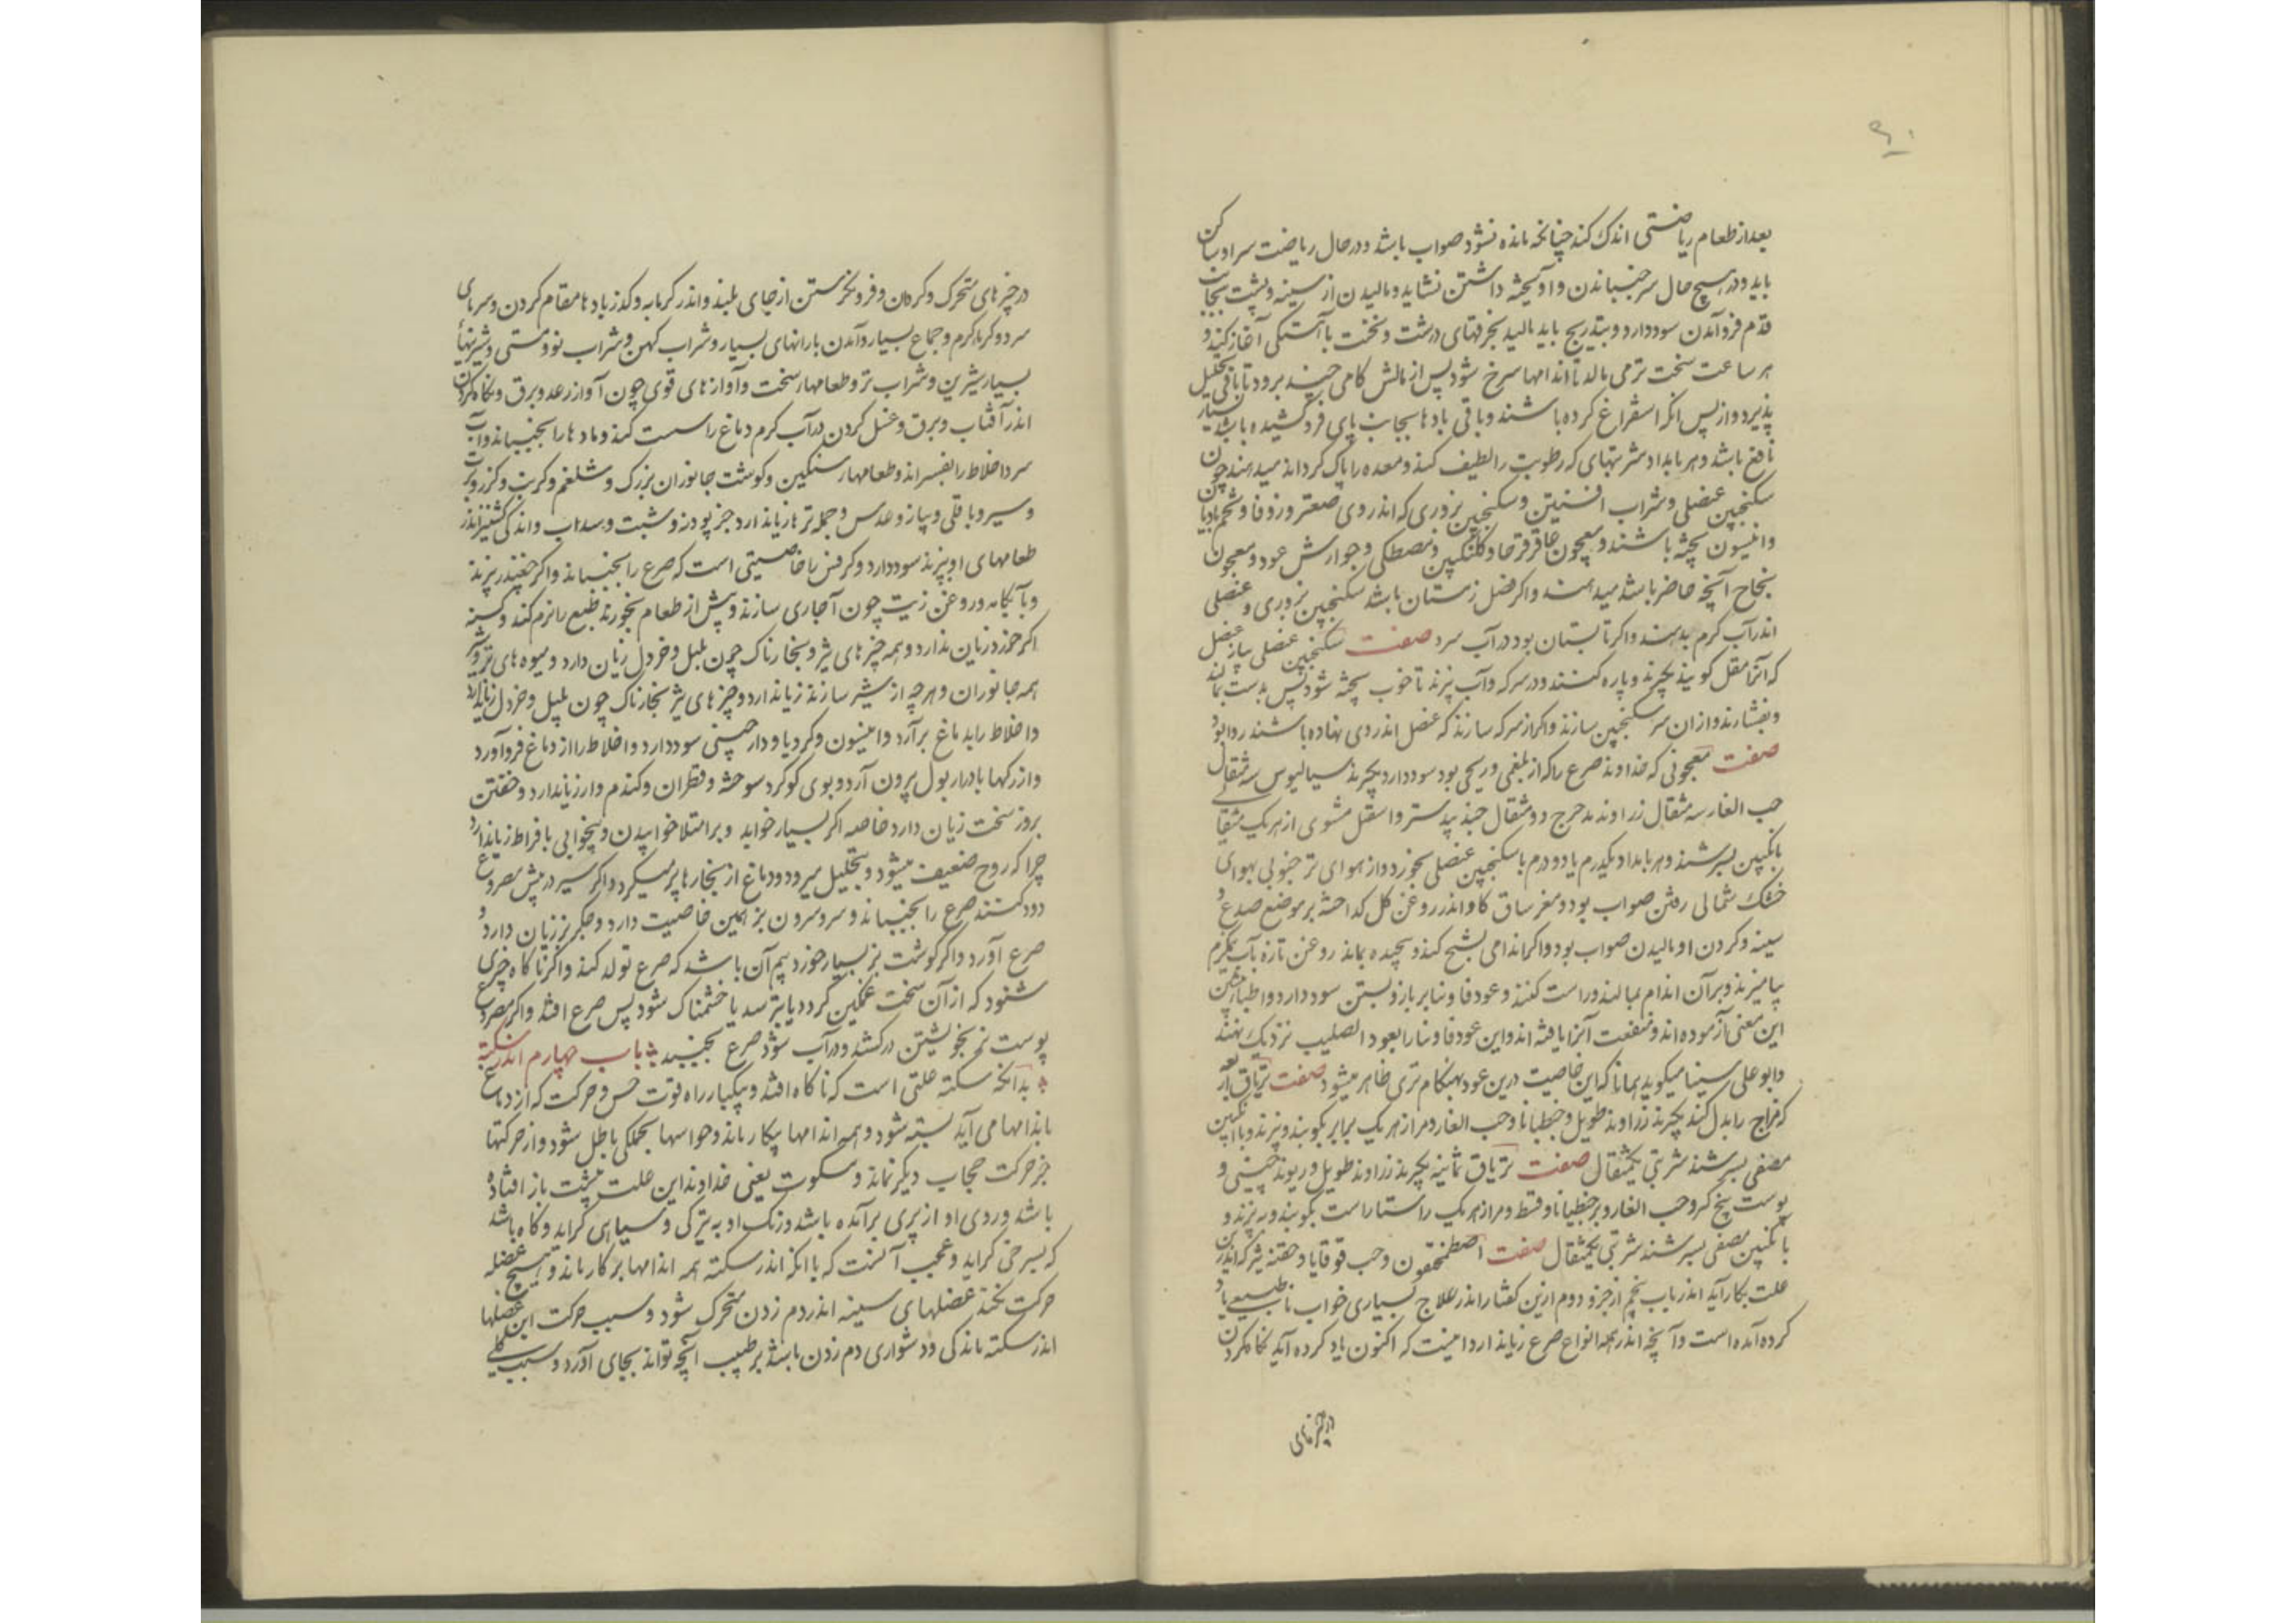 بعد از طعام ریاضتی اندک کند چنانکه مانده نشود صواب باشد و در حال ریاضت سر او ساکن
باید و در هیچ حال سر جنبانیدن و آویخته داشتن نشاید و مالیدن از سینه و پشت بجانب
قدم فرو آمدن سود دارد و بتدریج باید مالید بخرقهای درشت و نخست بآهستگی آغاز کنند و
هر ساعت سخت تر می مالد تا اندامها سرخ شود پس از مالش کامی چند برود تا باقی تحلیل
پذیرد و از پس انکه استفراغ کرده باشند و باقی بادها بجانب پای فرو کشیده باشد بسیار
نافع باشد و هر بامداد شربتهای که رطوبت را لطیف کند و معده را پاک گرداند میدهند چون
سکنجبین عنصلی و شراب افسنتین و سکنجبین بزوری که اندر وی صعتر و زوفا و تخم بادیان
و انیسون پخته باشند و معجون عاقرقرحا و گلنگبین و مصطکی و جوارش عود و معجون
نجاح آنچه حاضر باشد میدهند و اکر فصل زمستان باشد سکنجبین بزوری و عنصلی
اندر آب کرم بدهند و اکر تابستان بود در آب سرد صفت سکنجبین عنصلی پیاز عنصل
که آنرا مقل کویند بکیرند و پاره کنند و در سرکه و آب پزند تا خوب پخته شود پس بدست بمالند
و بفشارند و ازان سر سکنجبین سازند و اکر از سرکه سازند که عنصل اندر وی نهاده باشند روا بود
صفت معجونی که خداوند صرع را که از بلغمی و ریحی بود سود دارد بکیرند سیسالیوس سه مثقال
حب الغار سه مثقال زراوند مدحرج دو مثقال جندبیدستر و اسقیل مشوی از هر یک مثقال
بانکبین بسرشند و هر بامداد یکدرم یا دو درم با سکنجبین عنصلی بخورد و از هوای تر جنوبی بهوای
خشک شمالی رفتن صواب بود و مغز ساق کاو اندر روغن گل کداخته بر موضع صدغ و
سینه و کردن او مالیدن صواب بود و اکر اندامی تشنج کند و پیچیده بماند روغن تازه بآب نیم کرم
بیامیزند و بر آن اندام بمالند و راست کنند و عود فاونیا بر بازو بستن سود دارد و اطبا پیشین
این معنی آزموده اند و منفعت آنرا یافته اند و این عود فاونیا را عود الصلیب نزدیک نهند
و ابو علی سینا میکوید همانا که این خاصیت درین عود بهنکام تری ظاهر میشود صفت تریاق اربعه
که مزاج را بدل کند بکیرند زراوند طویل و جنطیانا و حب الغار و مر از هر یک برابر بکوبند و بپزند و با انکبین
مصفی بسرشند شربتی یکمثقال صفت تریاق ثمانیه بکیرند زراوند طویل و ریوند چینی و
پوست بیخ کبر و حب الغار و مر و جنطیانا و قسط و مر از هر یک راستا راست بکوبند و بپزند و
بانکبین مصفی بسرشند شربتی یکمثقال صفت اصطمخیقون و حب قوقایا و حقنه تیز که اندرین
علت بکار آید اندر باب پنجم از جزو دوم ازین کفتار اندر علاج بسیاری خواب ناطبیعی یاد
کرده آمده است و آنچه اندر همه انواع صرع زیاندارد اینست که اکنون یاد کرده آید نکاه کردن
در چیزهای
در چیزهای متحرک و کردان و فرو نکرستن از جای بلند و اندر کرمابه و کذر بادها مقام کردن و سرمای
سرد و کرمای کرم و جماع بسیار و آمدن بارانهای بسیار و شراب کهن و شراب نو و مستی و شیرینیهای
بسیار شیرین و شراب تر و طعامهای سخت و آوازهای قوی چون آواز رعد و برق و نکاه کردن
اندر آفتاب و برق و غسل کردن در آب کرم دماغ را سست کند و مادها را بجنباند و آب
سرد اخلاط را بفسراند و طعامهای سنکین و کوشت جانوران بزرک و شلغم و کرنب و کزر و کرب
و سیر و باقلی و پیاز و عدس و جمله ترها زیاندارد جز پودنه و شبت و سداب و اندکی کشنیز اندر
طعامهای او بپزند سود دارد و کرفس را خاصیتی است که صرع را بجنباند و اکر چغندر بپزند
و بآبکامه و روغن زیت چون آچاری سازند و پیش از طعام بخورند طبع را نرم کند و کرسنه
اکر خورد زیان ندارد و همه چیزهای تیز و بخارناک چون پلپل و خردل زیان دارد و میوه های تر و شیر
همه جانوران و هر چه از شیر سازند زیاندارد و چیزهای تیز بخارناک چون پلپل و خردل زیاندارد
و اخلاط را بدماغ برآرد و انیسون و کرویا و دارچینی سود دارد و اخلاط را از دماغ فرو آورد
و از رکها بادرار بول بیرون آرد و بوی کوکرد سوخته و قطران و کندم وارزیاندارد و خفتن
بروز سخت زیان دارد خاصه اکر بسیار خوابد و بر امتلا خوابیدن و بیخوابی بافراط زیاندارد
چرا که روح ضعیف میشود و بتحلیل میرود و دماغ از بخارها پر میکردد و اکر سیر در پیش مصروع
دود کنند صرع را بجنباند و سر و سرون بز همین خاصیت دارد و جکر بز زیان دارد و
صرع آورد و اکر کوشت بز بسیار خورد بیم آن باشد که صرع تولد کند و اکر ناکاه چیزی
شنود که از آن سخت غمکین کردد یا بترسد یا خشمناک شود پس صرع افتد و اکر مصروع
پوست نم بخویشتن درکشد و در آب شود صرع بجنبد باب چهارم اندر سکته
بدانکه سکته علتی است که ناکاه افتد و بیکبار راه قوت حس و حرکت که از دماغ
باندامها می آید بسته شود و همه اندامها بیکار ماند و حواسها بجملکی باطل شود و از حرکتها
جز حرکت حجاب دیکر نماند و مسکوت یعنی خداوند این علت بپشت باز افتاده
باشد و روی او از پری برآمده باشد و رنک او به تیرکی و سیاهی کراید و کاه باشد
که بسرخی کراید و عجب آنست که با انکه اندر سکته همه اندامها بر کار ماند و هیچ عضله
حرکت نکند عضلهای سینه اندر دم زدن متحرک شود و سبب حرکت این عضلها
اندر سکته ماندکی و دشواری دم زدن باشد بر طبیب آنچه تواند بجای آورد و سبب کلی